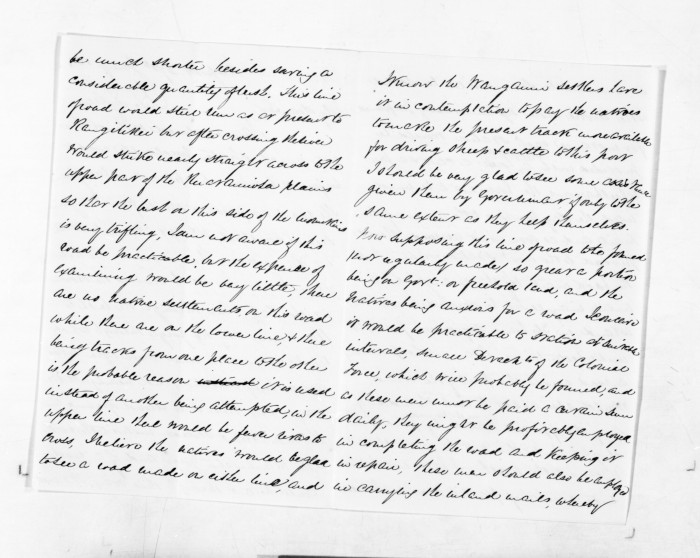 be much shorter besides saving a
considerable quantity of bush. This line
of road would still run as at present to
Rangitikei but after crossing the river
would strike nearly straight across to the
upper part of the Ruamahanga plains
so that the bush on this side of the mountains
is very trifling, I am not aware if this
road be practicable, but the expense of
examining would be very little, there
are no native settlements on this road
while there are on the lower line & there
being tracks from one place to the other
is the probable reason it is used
instead of another being attempted, in the
upper line there would be fewer rivers to
cross, I believe the natives would be glad
to see a road made on either line, and
I know the Wanganui settlers have
it in contemplation to pay the natives
to make the present track more available
for driving sheep & cattle to this port
I should be very glad to see some assistance
given them by Government if only to the
same extent as they help themselves.
Now supposing this line of road to be formed
(not regularly made) so great a portion
being on Govt: or freehold land, and the
Natives being anxious for a road I conceive
it would be practicable to station at suitable
intervals, small Detacht of the Colonial
Force, which will probably be formed, and
as these men must be paid a certain sum
daily, they might be profitably employed
in completing the road and keeping it
in repair, these men should also be employed
in carrying the inland mails, whereby